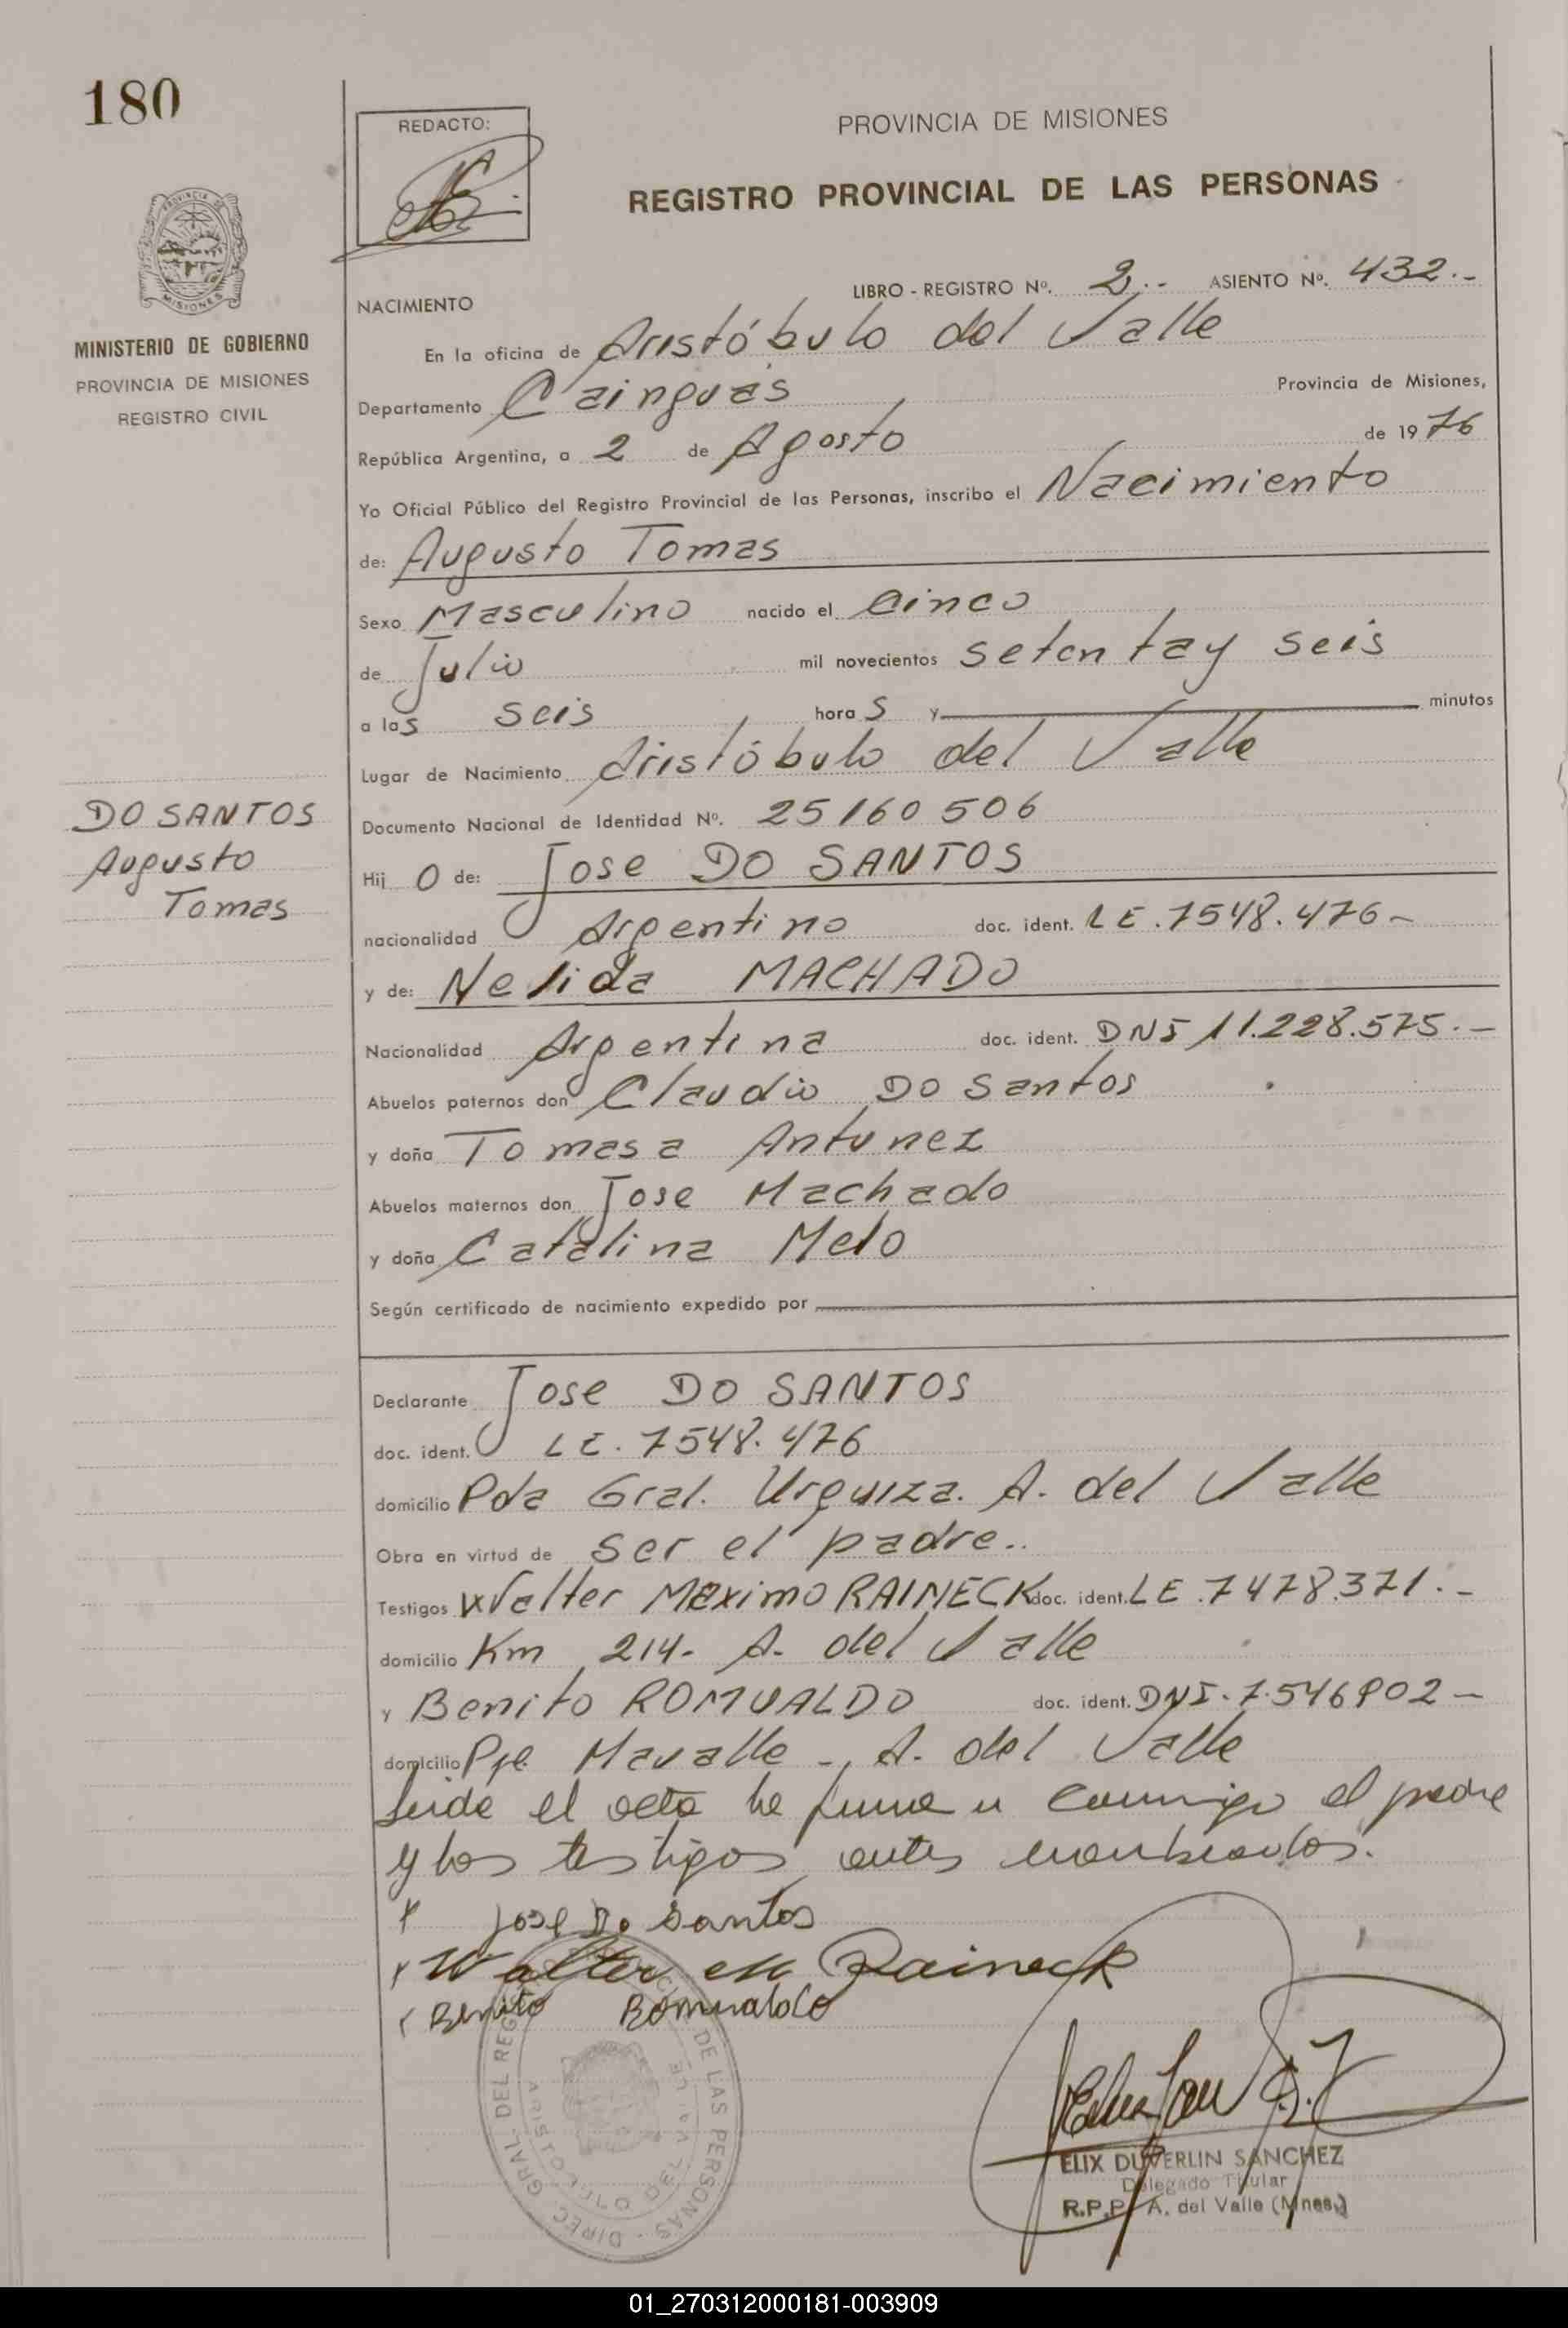 180
REDACTO:
PROVINCIA DE MISIONES
REGISTRO PROVINCIAL DE LAS PERSONAS
PROVINCIA DE
MISIONES
MINISTERIO DE GOBIERNO
PROVINCIA DE MISIONES
REGISTRO CIVIL
LIBRO - REGISTRO Nº. 2.- ASIENTO Nº. 432.-
NACIMIENTO
En la oficina de Aristóbulo del Valle
Departamento Cainguás Provincia de Misiones,
República Argentina, a 2 de Agosto de 1976
Yo Oficial Público del Registro Provincial de las Personas, inscribo el Nacimiento
de: Augusto Tomas
Sexo Masculino nacido el Cinco
de Julio mil novecientos setenta y seis
a las seis horas y minutos
Lugar de Nacimiento Aristóbulo del Valle
DO SANTOS
Augusto
Tomas
Documento Nacional de Identidad Nº. 25160506
Hijo de: Jose DO SANTOS
nacionalidad Argentino doc. ident. LE. 7548.476-
y de: Nelida MACHADO
Nacionalidad Argentina doc. ident. DNI 11.228.575.-
Abuelos paternos don Claudio Do Santos
y doña Tomasa Antunez
Abuelos maternos don Jose Machado
y doña Catalina Melo
Según certificado de nacimiento expedido por
Declarante Jose DO SANTOS
doc. ident. LE. 7548.476
domicilio Pda Gral. Urquiza. A. del Valle
Obra en virtud de ser el padre..
Testigos Walter Maximo RAINECK doc. ident. LE. 7478.371.-
domicilio Km 214- A. del Valle
y Benito ROMUALDO doc. ident. DNI. 7.546902-
domicilio Pje Mavalle -, A. del Valle
Leida el acta la firman conmigo el padre
y los testigos antes nombrados.
x Jose Do Santos
x Walter M Raineck
x Benito Romualdo
DIREC. GRAL. DEL REGISTRO DE LAS PERSONAS
ARISTOBULO DEL VALLE
ELIX DUVERLIN SANCHEZ
Delegado Titular
R.P.P. A. del Valle (Mnes.)
01_270312000181-003909